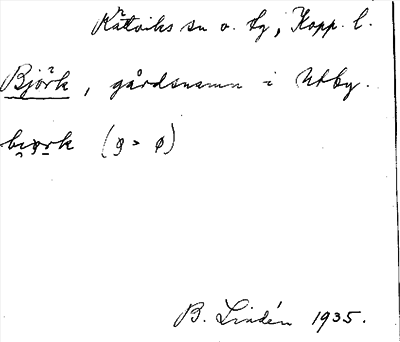 Rättviks sn o. tg, Kopp. l.
Björk, gårdsnamn i Utby.
bi̯ǫrk (ǫ > ø)
B. Lindén 1935.